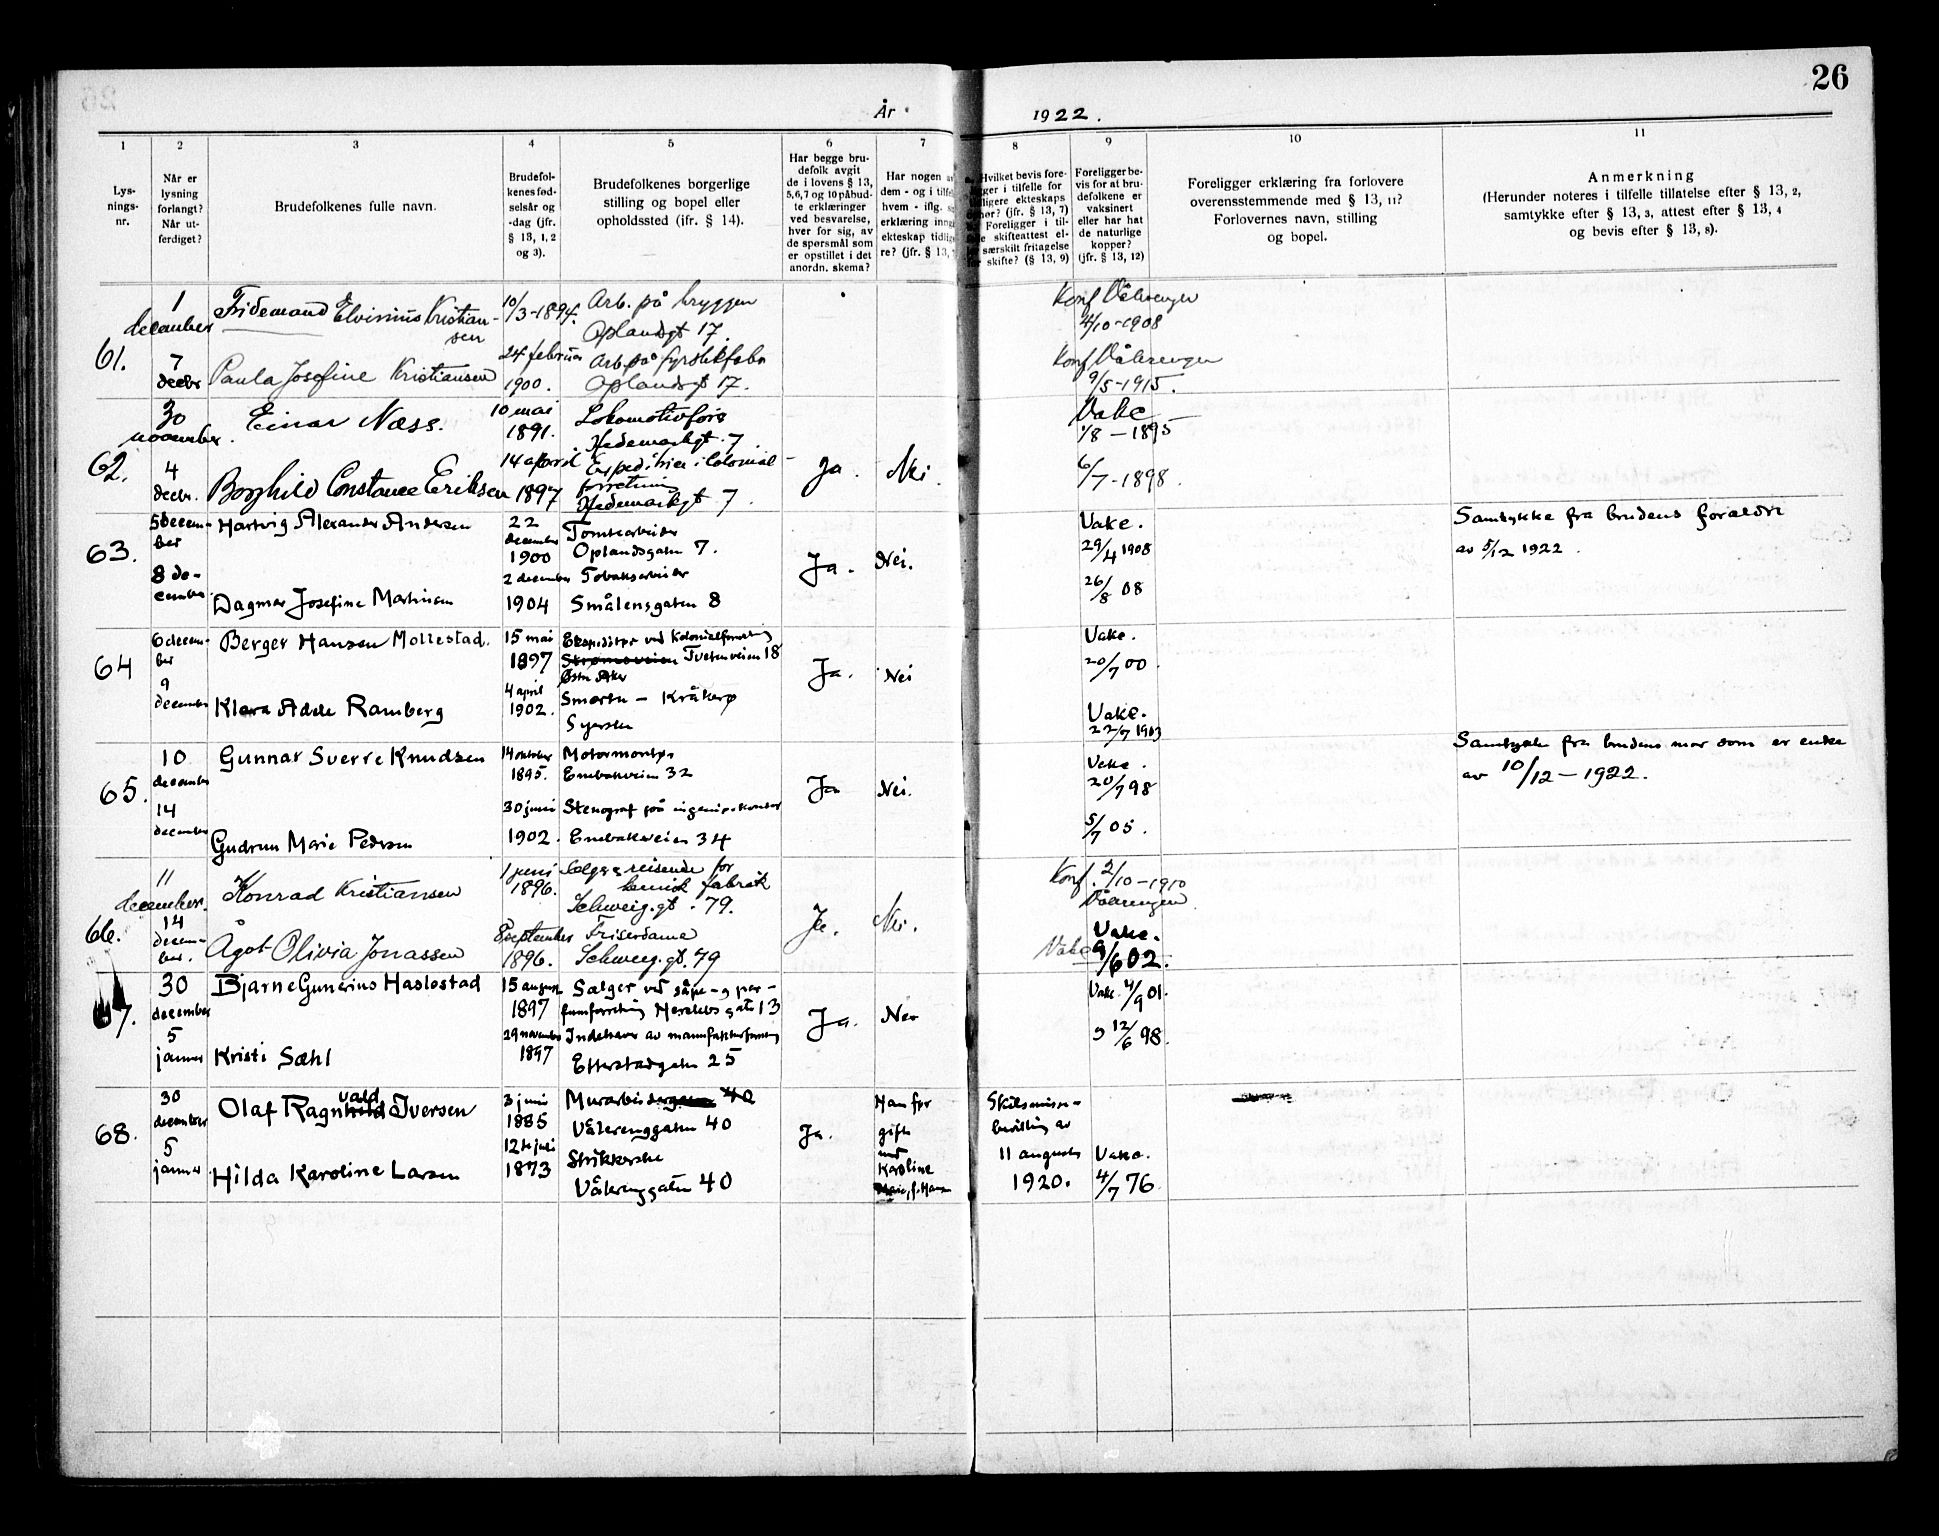 26
År 1922.
1 2 3 4 5 6 7 8 9 10 11
Lys-
nings-
nr.
Når er
lysning
forlangt?
Når ut-
ferdiget?
Brudefolkenes fulle navn.
Brudefol-
kenes fød-
selsår og
-dag (jfr.
§ 13, 1, 2
og 3).
Brudefolkenes borgerlige
stilling og bopel eller
opholdssted (ifr. § 14).
Har begge bru-
defolk avgit
de i lovens § 13,
5,6,7 og 10 påbud-
te erklæringer
ved besvarelse,
hver for sig, av
de spørsmål som
er opstillet i det
anordn. skema?
Har nogen av
dem - og i tilfel
hvem - iflg.
erklæring inng
ekteskap tidlig
re? (jfr. § 13,
Hvilket bevis fore-
ger i tilfelle for
ligere ekteskaps
hør? (jfr. § 13, 7)
Foreligger i til-
e skifteattest el-
særskilt fritagelse
for skifte? (§ 13, 9)
Foreligger be-
vis for at bru-
defolkene er
vaksinert
eller har hat
de naturlige
kopper?
(jfr. § 13, 12)
Foreligger erklæring fra forlovere
overensstemmende med § 13, 11?
Forlovernes navn, stilling
og bopel.
Anmerkning
(Herunder noteres i tilfelle tillatelse efter § 13, 2,
samtykke efter § 13, 3, attest efter § 13, 4
og bevis efter § 13, 8).
61.
1
december
Fridemand Elvinius Kristian-
sen
10/3-1894.
Arb. på bryggen
Oplandsgt 17.
Konf Vålerengen
4/10-1908
7
decbr
Paula Josefine Kristiansen
24 februar
1900.
Arb på fyrstikfabr
Oplandsgt 17.
Konf Vålerengen
9/5-1915.
62.
30
november.
Einar Næss.
10 mai
1891.
Lokomotivfører
Hedemarkgt. 7
Vakc
1/8 - 1895
4
decbr.
Borghild Constance Eriksen
14 april
1897
Expeditrice i Colonial-
forretning
Hedemarkgt 7.
Ja.
Nei.
6/7-1898.
63.
5 decem-
ber
Hartvig Alexander Andersen
22
december
1900
Tomtearbeider
Oplandsgaten 7.
Ja.
Nei.
Vakc.
29/4 1908
Samtykke fra brudens foreldre
av 5/12 1922.
8 de-
cember
Dagmar Josefine Martinsen
2 december
1904
Tobaksarbeider
Smålensgaten 8
26/8 08
64
6 decem-
ber
Berger Hansen Mollestad.
15 mai
1897
Ekspeditør ved Kolonialforretning
Strømsveien Tvetenveien 18
Østre Aker
Ja.
Nei
Vakc.
20/7 00
9
december
Klara Adele Ramberg
4 april
1902.
Smerten - Kråkerø
Syerske
Vakc.
22/7 1903
65.
10
december
Gunnar Sverre Knudsen
14 oktober
1895.
Motormontør
Enebakveien 32
Ja
Nei.
Vakc.
20/7 98
Samtykke fra brudens mor som er enke
av 10/12 - 1922.
14
december
Gudrun Marie Pedersen
30 juni
1902.
Stenograf på ingeniørkontor
Enebakveien 34
5/7 05.
66.
11
december.
Konrad Kristiansen
1 juni
1896.
Sælger reisende for
kemisk fabrik
Schweig.gt. 79.
Ja.
Nei.
Konf. 2/10-1910
Vålerengen
14
decem-
ber.
Ågot Olivia Jonassen
8 september
1896.
Friserdame
Schweig.gt. 79
Vakc
Vakc.
9/6 02.
67.
30
december
Bjarne Gunerius Haslestad
15 august
1897
Sælger ved såpe- og par-
fumforretning Herslebs gate 13
Ja.
Nei
Vakc. 4/9 01.
5
januar
Kristi Sæhl
29 november
1897
Indehaver av manufakturforretning
Etterstadgaten 25
12/6 98.
68.
30
december
Olaf Ragnvald Iversen
3 juni
1885
Murarbeider 40
Vålerenggaten 40
Ja.
Han før
gift
med
Karoline
Marie, f. Hansen
Skilsmisse-
bevilling av
11 august
1920.
5
januar
Hilda Karoline Larsen
12 juli
1873
Strikkerske
Vålerenggaten 40
Vakc.
4/7 76